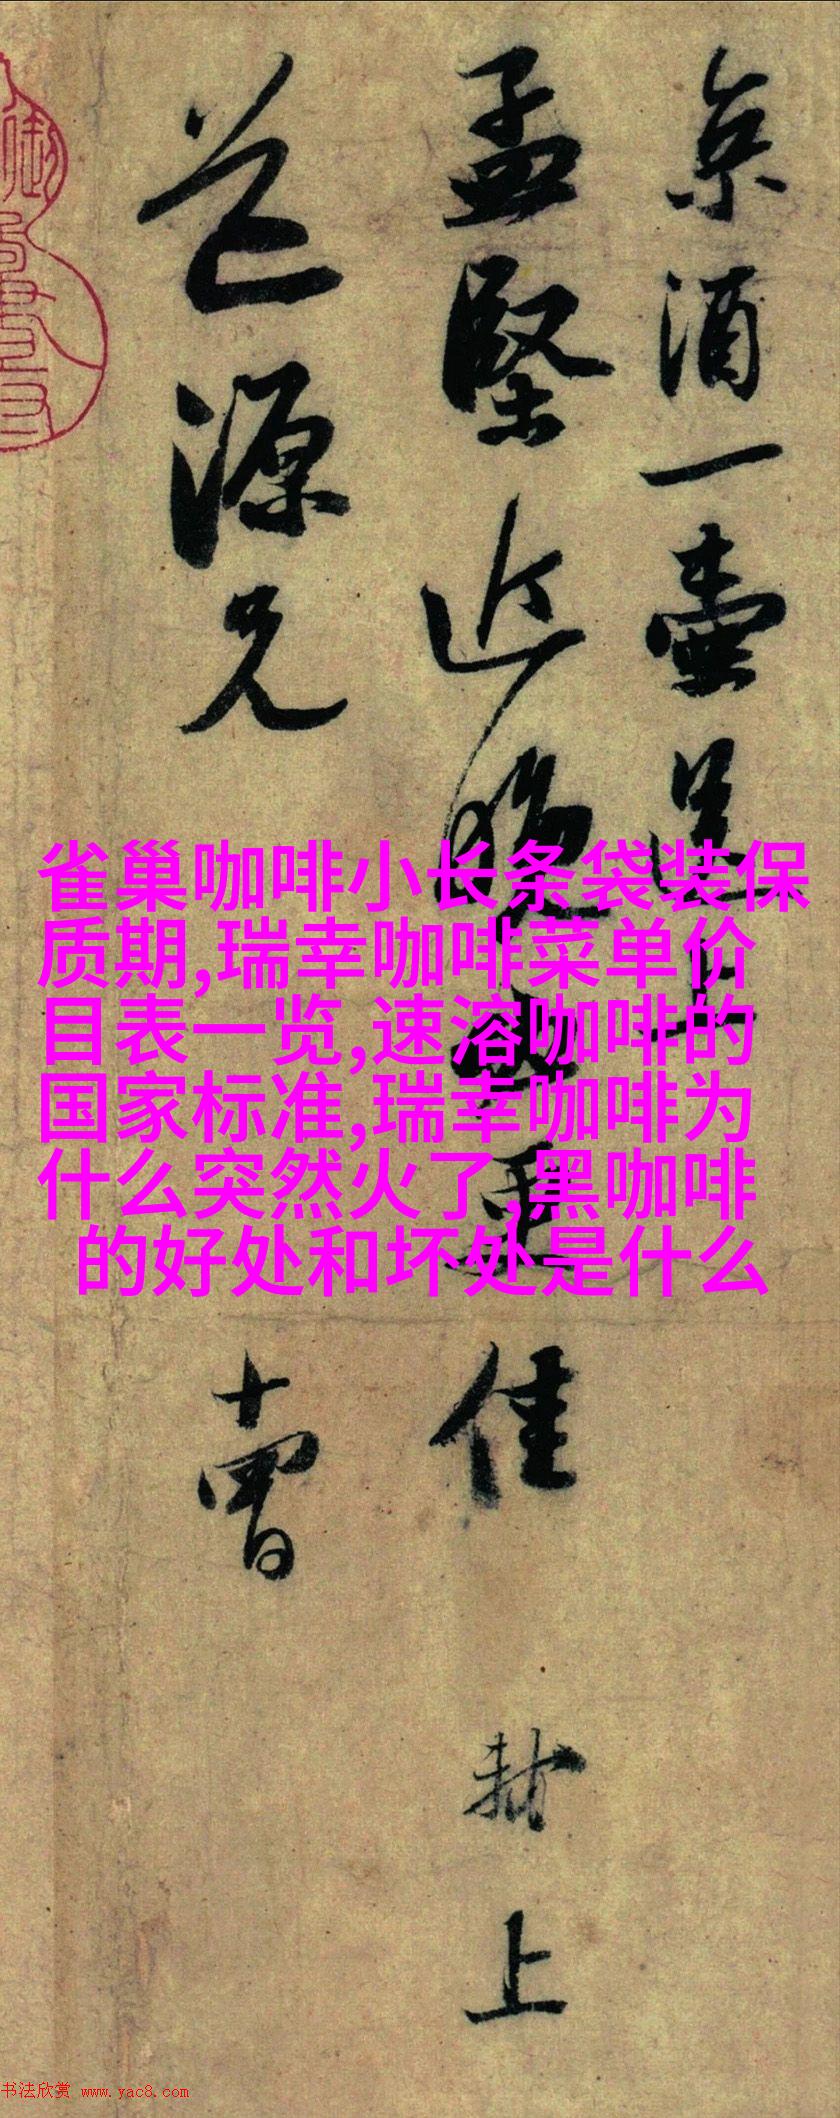 京酒一壷送上
孟堅近晚必更佳
封上
道源兄
十曹
雀巢咖啡小长条袋装保
质期,瑞幸咖啡菜单价
目表一览,速溶咖啡的
国家标准,瑞幸咖啡为
什么突然火了,黑咖啡
的好处和坏处是什么
书法欣赏 www.yac8.com